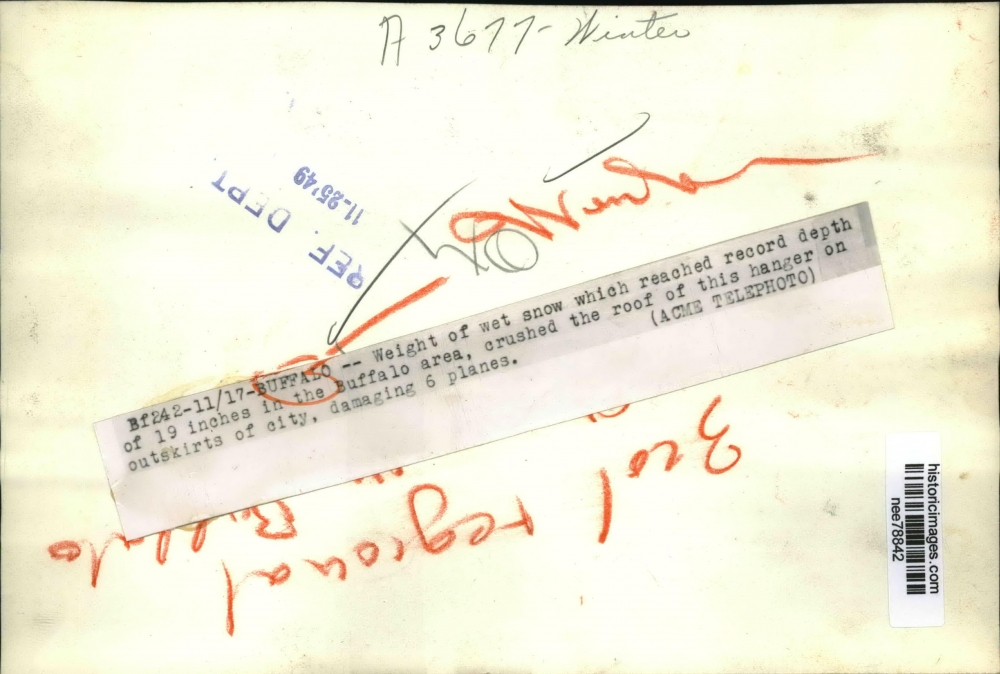 A 3677- Winter
REF. DEPT
11-25'49
Bf242-11/17-BUFFALO -- Weight of wet snow which reached record depth
of 19 inches in the Buffalo area, crushed the roof of this hanger on
outskirts of city, damaging 6 planes. (ACME TELEPHOTO)
3 col
regional
Buffalo
historicimages.com
nee78842